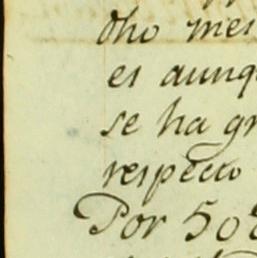 dho mes
es aunq
se ha gr
respecto
Por 50